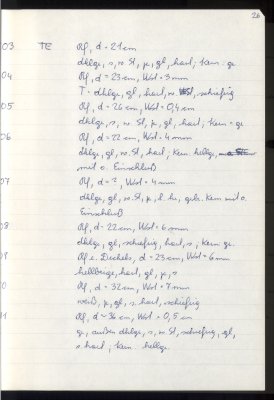 26
03 TE Rf, d = 21 cm
dklge, s, w. St, p, gl, hart; Kern: ge
04 Rf, d = 23 cm, Wst = 3 mm
T - dklge, gl, hart, w St, schiefrig
05 Rf, d = 26 cm, Wst = 0,4 cm
dklge, s, w. St, p, gl, hart; Kern = ge
06 Rf, d = 22 cm, Wst = 4 mm
dklge, gl, w. St, hart; Kern hellge,
mit o. Einschluß
07 Rf, d = ?, Wst = 4 mm
dklge, gl, w. St, p, Kern mit o.
Einschluß
08 Rf, d = 22 cm, Wst = 6 mm
dklge, gl, schiefrig, hart, s, Kern: ge
09 Rf e. Deckels, d = 23 cm, Wst = 6 mm
hellbeige, hart, gl, p, s
10 Rf, d = 32 cm, Wst = 7 mm
weiß, p, gl, s. hart, schiefrig
11 Rf, d ≈ 36 cm, Wst = 0,5 cm
ge, außen dklge, s, w. St, schiefrig, gl,
s. hart, Kern hellge